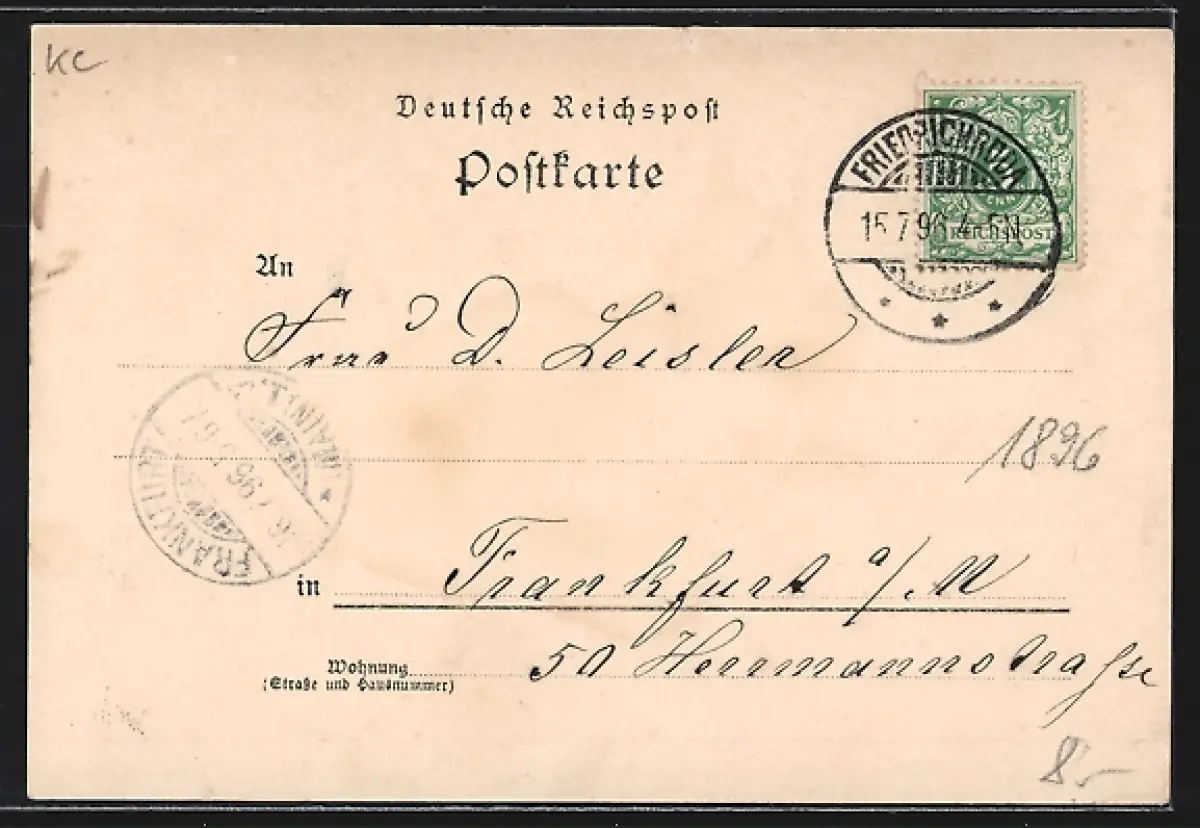 KC
Deutsche Reichspost
Postkarte
FRIEDRICHRODA
15.7.96.4-5N
REICHSPOST
An
Frau D. Leisler
FRANKFURT
(MAIN) 1.
7.96
1896
in Frankfurt a/M
Wohnung
(Straße und Hausnummer)
50 Herrmannstraße
8,-